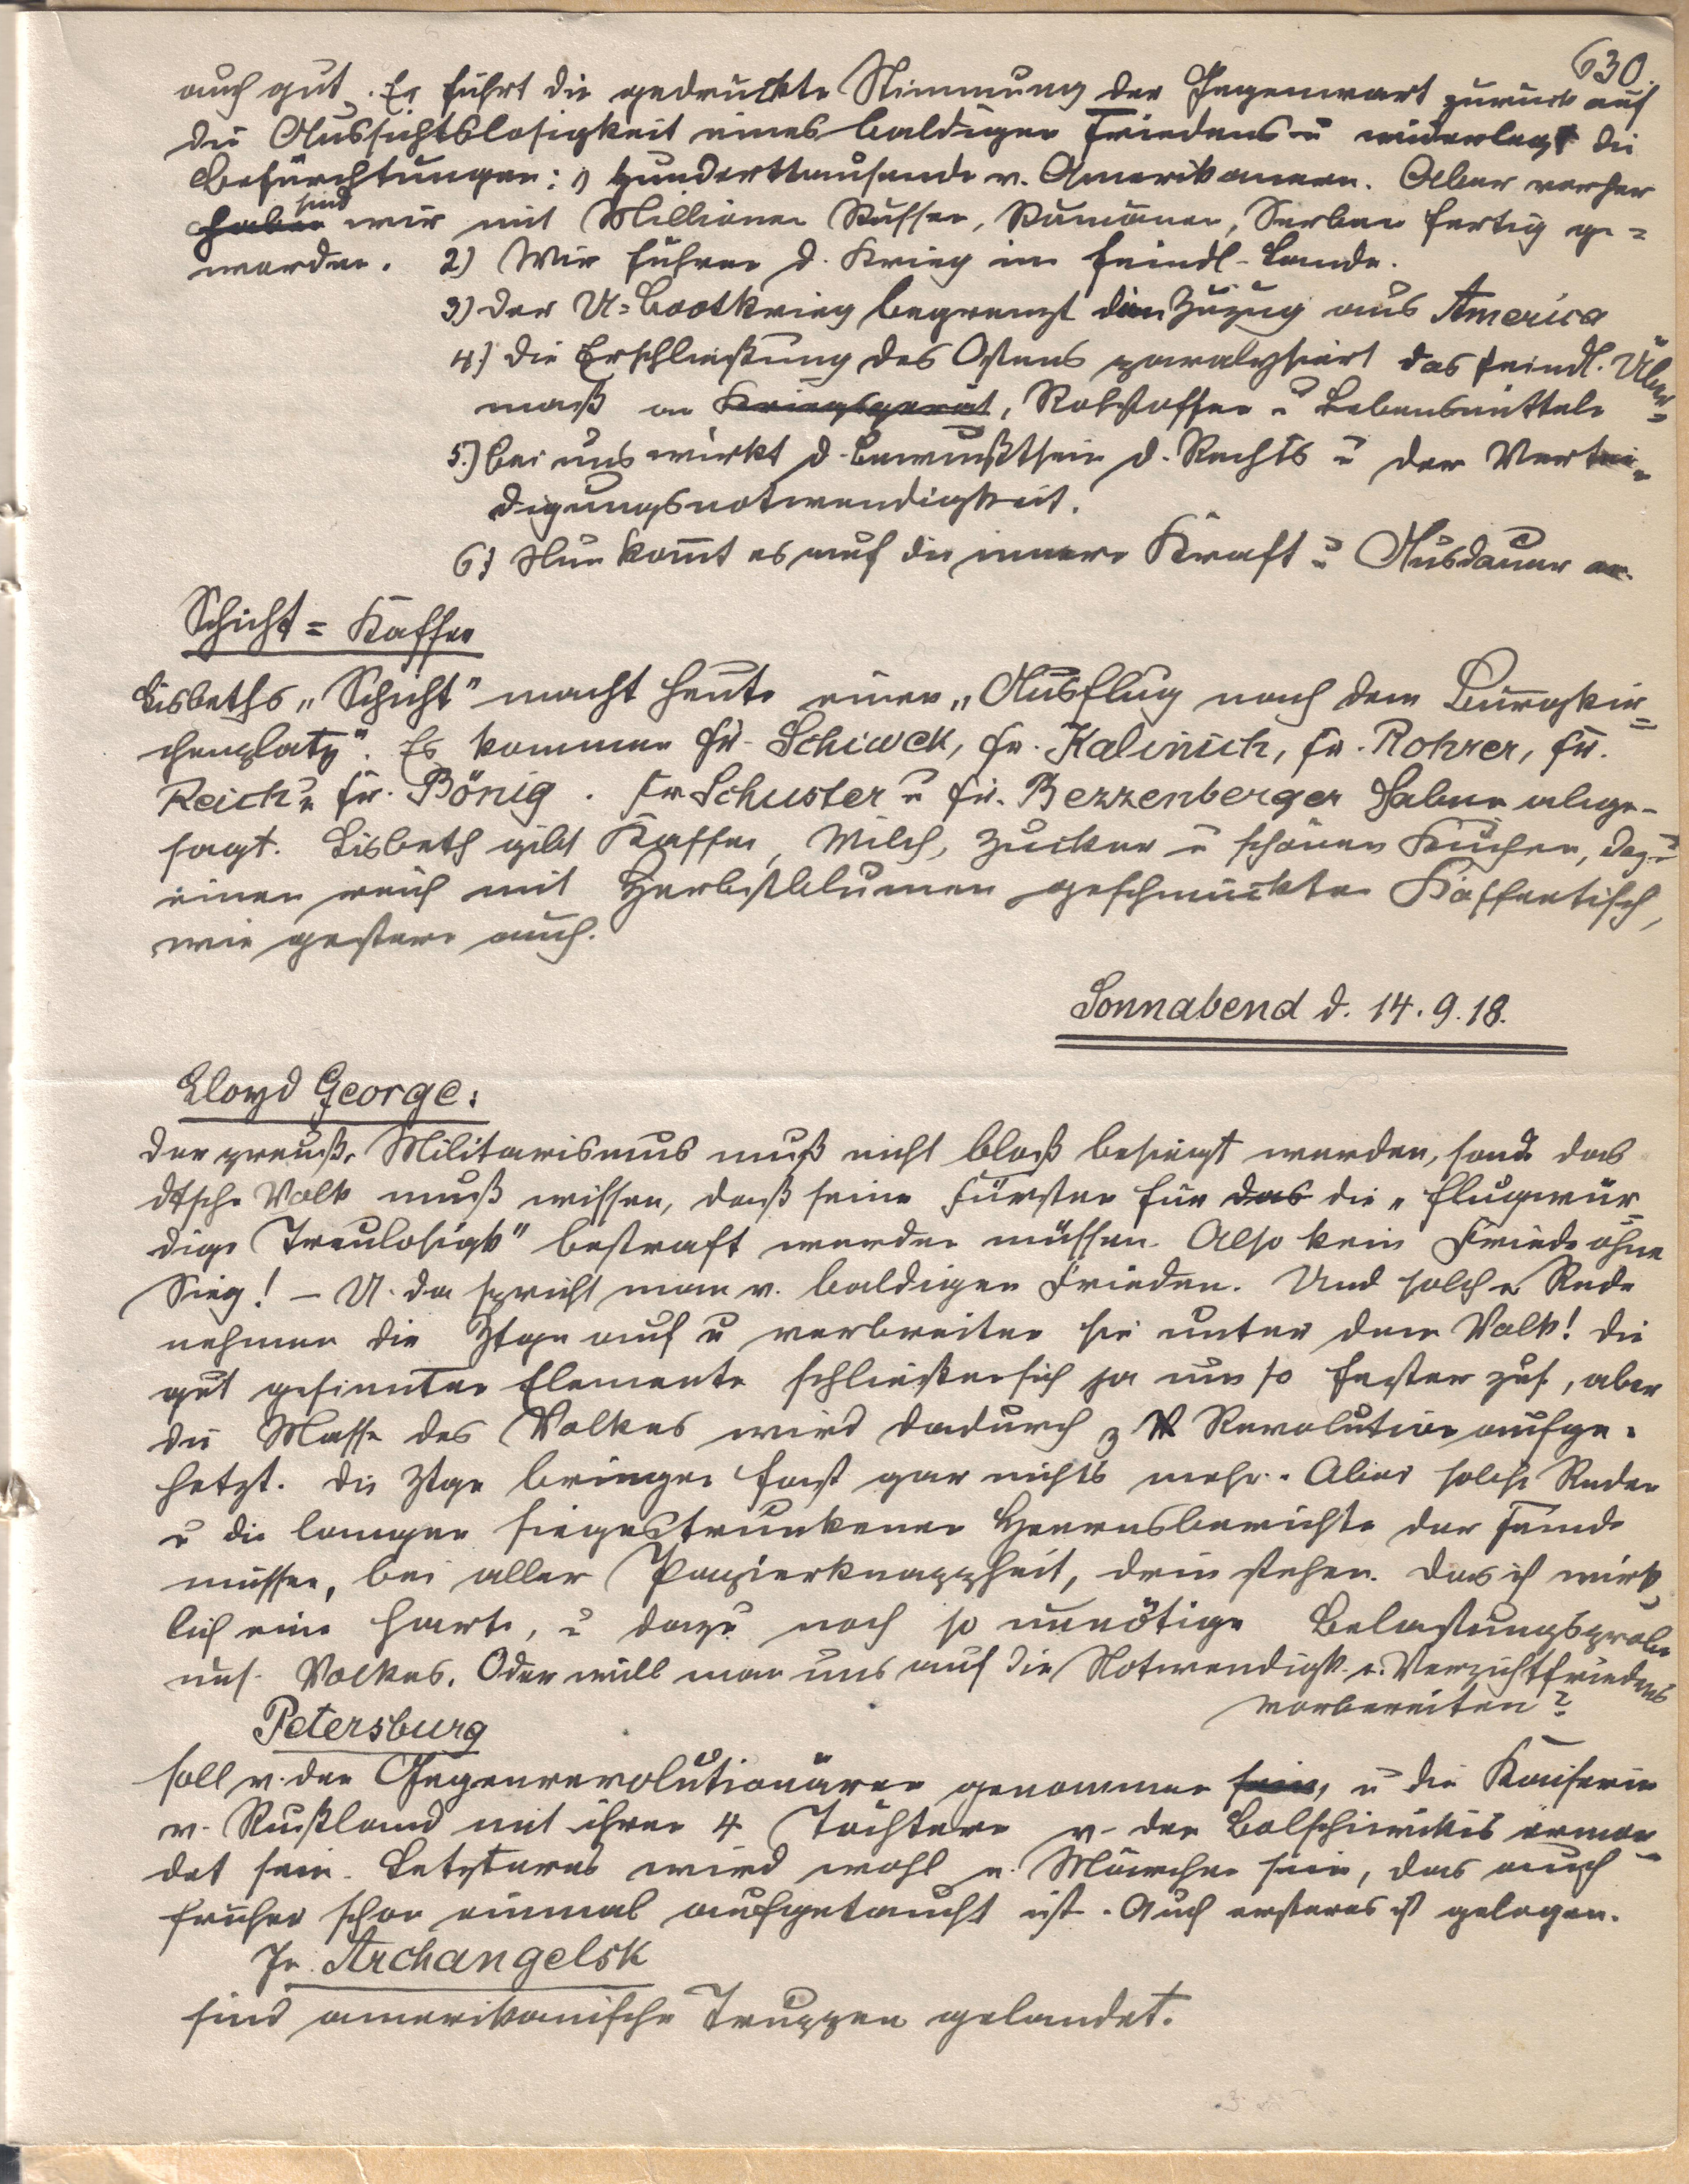 630.
auch gut. Er führt die gedrückte Stimmung der Gegenwart zurück auf
die Aussichtslosigkeit eines baldigen Friedens u widerlegt die
Befürchtungen: 1) Hunderttausende v. Amerikanern. Aber vorher
haben sind wir mit Millionen Russen, Rumänen, Serben fertig ge=
worden. 2) Wir führen d. Krieg im feindl. Lande.
3) Der U=Bootkrieg begrenzt den Zuzug aus America
4) Die Erschließung des Ostens paralysiert das feindl. Über=
maß an Kriegsgerät, Rohstoffen u Lebensmitteln
5.) Bei uns wirkt d. Bewußtsein d. Rechts u der Vertei=
digungsnotwendigkeit.
6) Nun kom̄t es auf die innere Kraft u Ausdauer an.
Schicht = Kaffee
Lisbeths „Schicht" macht heute einen „Ausflug nach dem Burgkir=
chenplatz". Es kommen Fr. Schiweck, Fr. Kalinich, Fr. Rohrer, Fr.
Reich u Fr. Bönig. Fr Schuster u Fr. Bezzenberger haben abge-
sagt. Lisbeth gibt Kaffee, Milch, Zucker u schönen Kuchen, dazu
einen reich mit Herbstblumen geschmückten Kaffeetisch,
wie gestern auch.
Sonnabend d. 14.9.18.
Lloyd George:
Der preuß. Militarismus muß nicht bloß besiegt werden, sond. das
dtsche Volk muß wissen, daß seine Fürsten für das die „fluchwür=
dige Treulosigk" bestraft werden müssen. Also kein Friede ohne
Sieg! – U. da spricht man v. baldigen Frieden. Und solche Rede
nehmen die Ztgn auf u verbreiten sie unter dem Volk! Die
gut gesinnten Elemente schließen sich ja um so fester zus., aber
die Masse des Volkes wird dadurch z Revolution aufge=
hetzt. Die Ztgn bringen fast gar nichts mehr. Aber solche Reden
u die langen siegestrunkenen Heeresberichte der Feinde
müssen, bei aller Papierknappheit, drin stehen. Das ist wirk=
lich eine harte, u dazu noch so unnötige Belastungsprobe
uns. Volkes. Oder will man uns auf die Notwendigk. e. Verzichtfriedens
vorbereiten?
Petersburg
soll v. den Gegenrevolutionären genommen sein, u die Kaiserin
v. Rußland mit ihren 4 Töchtern v. den Bolschiwikis ermor=
det sein. Letzteres wird wohl e. Märchen sein, das auch
früher schon einmal aufgetaucht ist. Auch ersteres ist gelogen.
In Archangelsk
sind amerikanische Truppen gelandet.